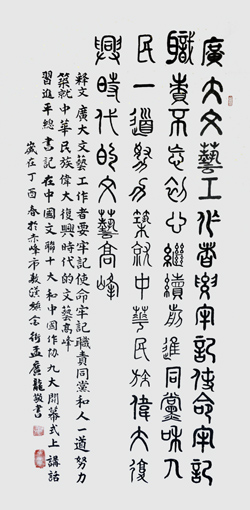 廣大文藝工作者要牢記使命牢記
職責不忘初心繼續前進同黨和人
民一道努力築就中華民族偉大復
興時代的文藝高峰
释文 廣大文藝工作者要牢記使命牢記職責同黨和人一道努力
築就中華民族偉大復興時代的文藝高峰
習進平總書記在中國文聯十大和中國作協九大開幕式上講話
歲在丁酉春於赤峰市敖漢旗 街孟廣龍敬書